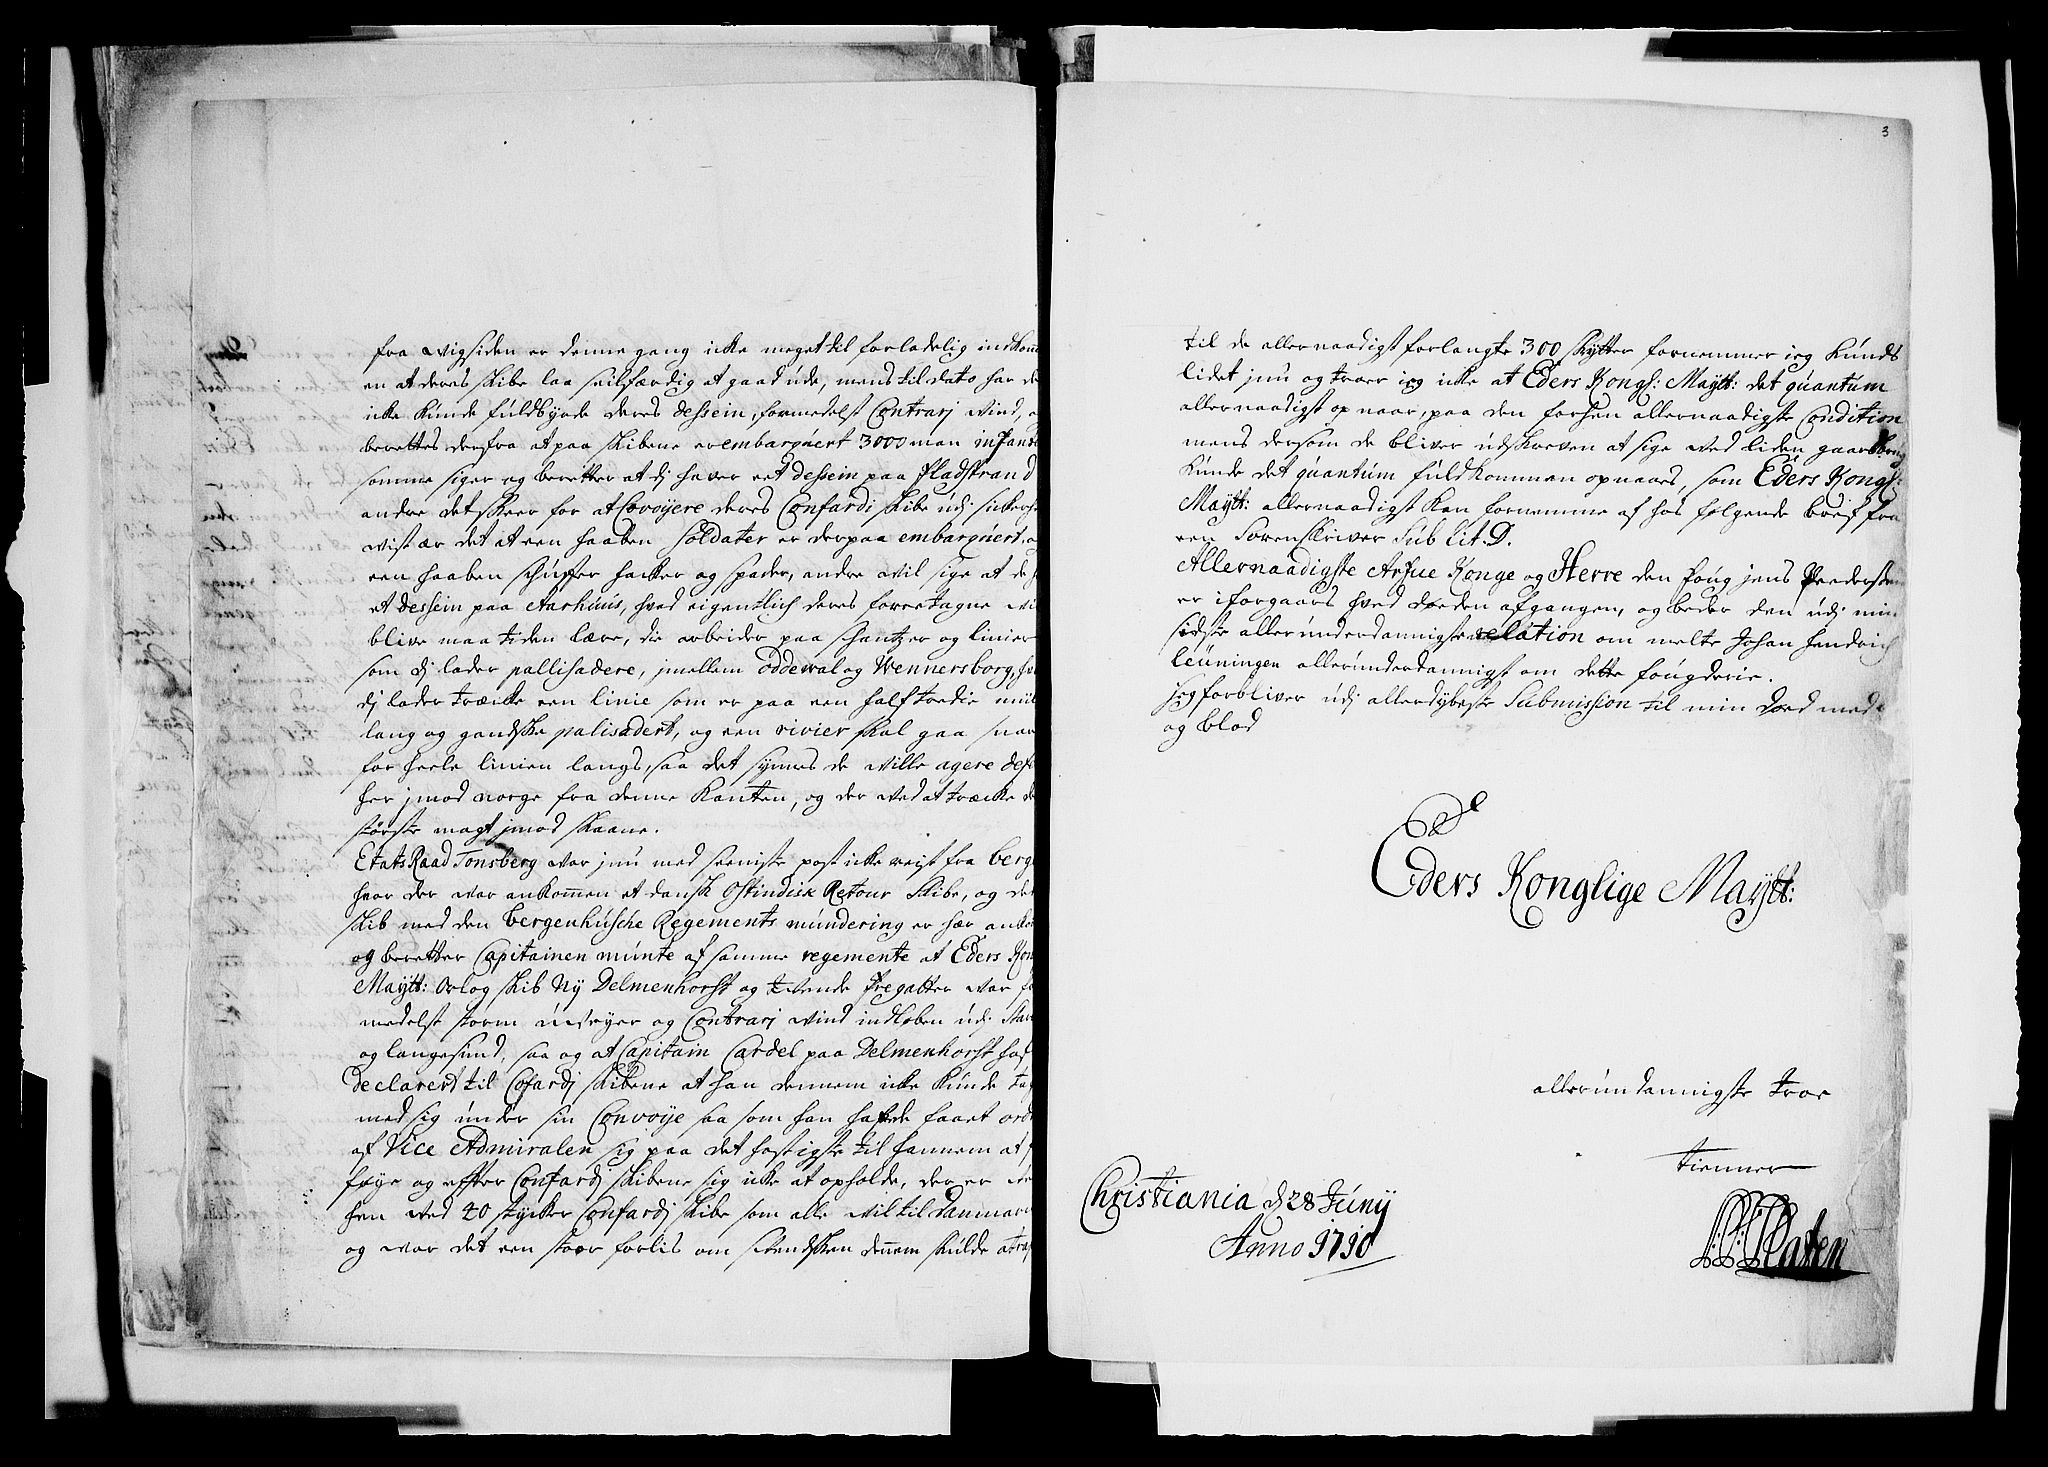 fra Wigsiden er denne gang icke meget til forladelig indkom
en at deres skibe laa seilfærdig at gaa ud, mens til dato har de
icke kunde fuldbyrde deres dessein, formedelst Contrari wind,
berettes derfra at paa skibene er embarqúert 3000 man infante
somme siger og beretter at di haver eet dessein paa Fladstrand
andre det skeer for at Covoyere deres Confardi skibe udi
wist ær det at een haaben Soldater er derpaa embarqúert,
een haaben schupper hacker og spader, andre wil sige at de
et dessein paa Aarhuus, hvad eigentlich deres foretagne wi
blive maa tiden lære, die arbeider paa schantzer og linier
som di lader pallisadere, jmellem Oddewal og Wennersborg,
di lader træcke een linie som er paa een half tredie miil
lang og gandske palisadert, og een rivier skal gaa
for heele linien langs, saa det synnes de wille agere defe
her jmod norge fra denne kanten, og der wed at træcke de
største magt jmod skaane.
Etats Raad Tonsberg war jnu med seeniste post icke reist fra berg
hvor der war ankommen et dansk Ostindisk Retour skibe, og det
skib med den bergenhúsche Regements múndering er hær anko
og beretter Capitainen múnte af samme regemente at Eders Kon
Maytt: Orlog skib Ny Delmenhorst og tvende Fregatter war
medelst storm úveyer og Contrari wind indløben udi
og langesund, saa og at Capitain Cardel paa Delmenhorst haf
declarert til Cofardi skibene at han dennem icke kúnde ta
med sig únder sin Convoye saa som han hafde faaet ord
af Vice Admiralen sig paa det hastigste til hannem at
føye og efter Confardi skibene sig icke at opholde, der er
hen wed 40 stycker Confardi skibe som alle wil til Danmarc
og war det een stoor forlis om Svendsken dennem skulde
3
til de allernaadigst forlangte 300 skytter fornemmer jeg kúnds
lidet jnu og troer jeg icke at Eders Kongl: Maytt: det qúantúm
allernaadigst opnaar, paa den forhen allernaadigste Condition
mens dersom de bliver udskreven at sige wed liden gaard
kúnde det qúantúm fúldkommen opnaaes, som Eders Kongl:
Maytt: allernaadigst kan fornemme af hos følgende breif fra
een Sorenskriver Sub Lit. D.
Allernaadigste Arfue Konge og Herre den foug jens Pedersen
er iforgaars hved døeden afgangen, og beder den udi min
sidste allerúnderdannigste relation om melte Johan Hendrich
Leúningen allerúnderdannigst om dette fougderie.
Jeg forbliver udi allerdybeste Submission til min død med
og blod
Eders Konglige Maytt:
allerúndannigste troe
tienner
Christiania d 28 Júny
Anno 1710